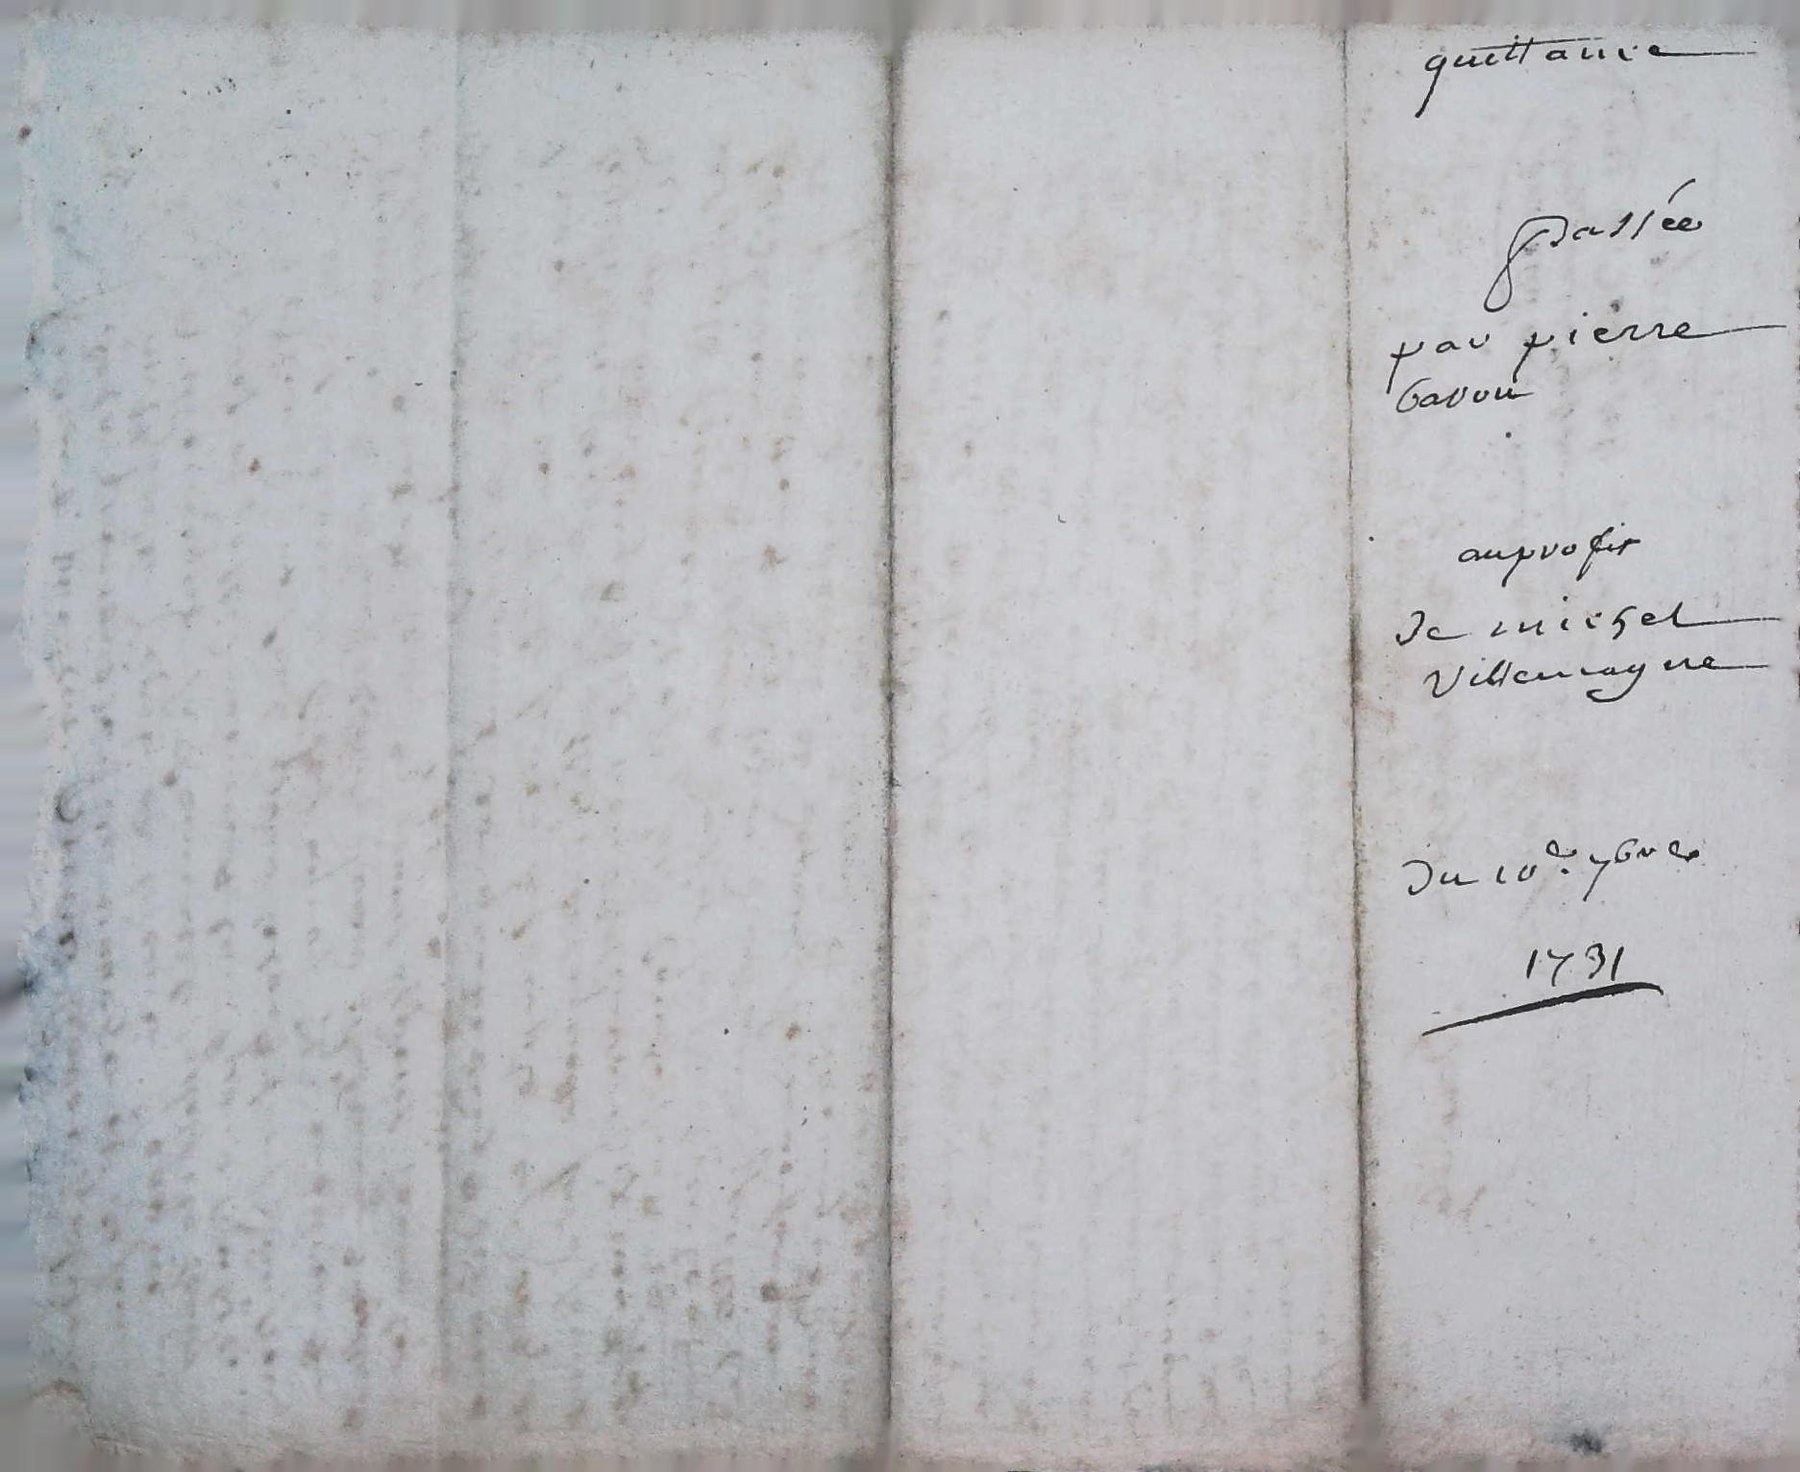 quittance
passée
par pierre
bavou
au profit
de michel
Villemagne
du 10e. 7bre
1731